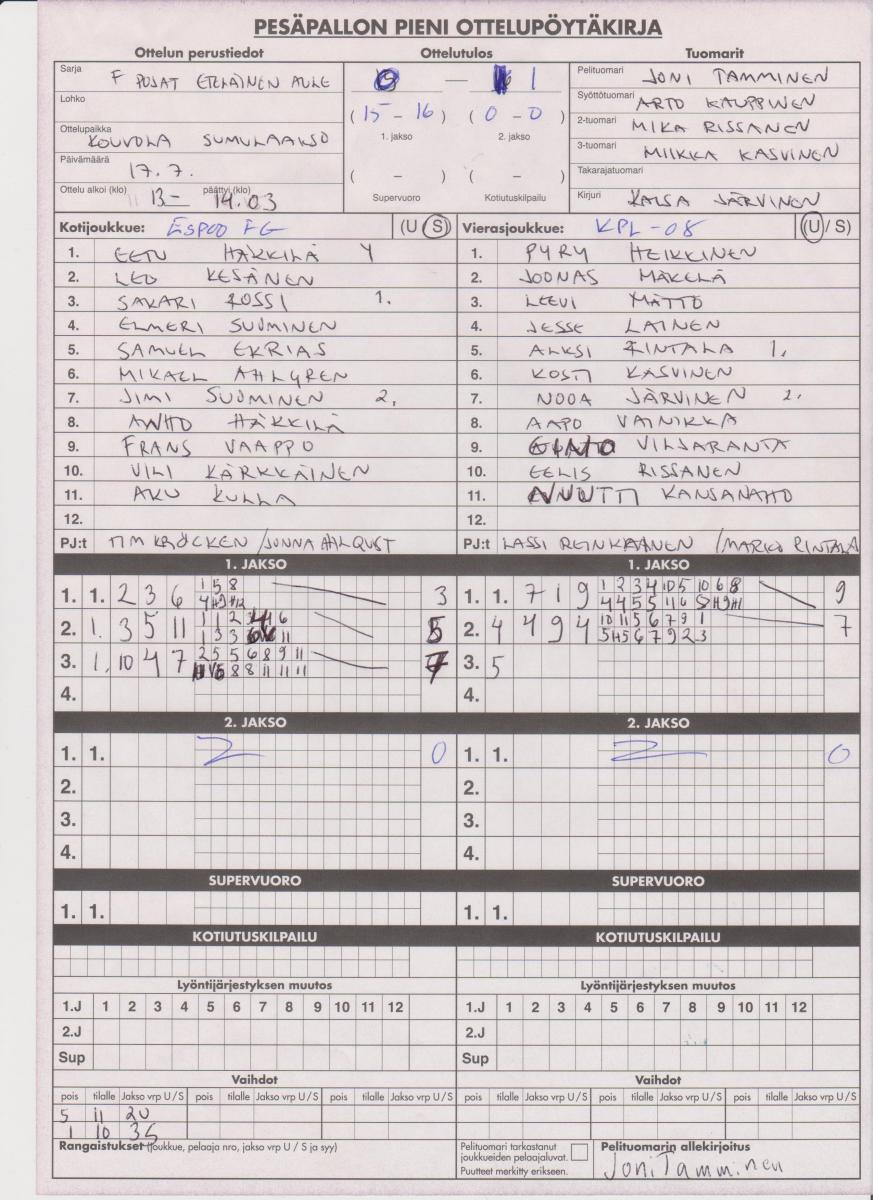 PESÄPALLON PIENI OTTELUPÖYTÄKIRJA
Ottelun perustiedot Ottelutulos Tuomarit
Sarja F POJAT ETELÄINEN ALUE
0 — 1
Pelituomari JONI TAMMINEN
Lohko
( 15 - 16 ) ( 0 - 0 )
Syöttötuomari ARTO KAUPPINEN
Ottelupaikka KOUVOLA SUMULAAKSO
1. jakso 2. jakso
2-tuomari MIKA RISSANEN
Päivämäärä 17.7.
( - ) ( - )
3-tuomari MIIKKA KASVINEN
Takarajatuomari
Ottelu alkoi (klo) 13- päättyi (klo) 14.03
Supervuoro Kotiutuskilpailu
Kirjuri KAISA JÄRVINEN
Kotijoukkue: ESPOO FG (U / S) Vierasjoukkue: KPL-08 (U / S)
1. EETU HÄKKILÄ Y 1. PYRY HEIKKINEN
2. LEO KESÄNEN 2. JOONAS MÄKELÄ
3. SAKARI ROSSI 1. 3. LEEVI MÄTTÖ
4. ELMERI SUOMINEN 4. JESSE LAINEN
5. SAMUEL EKRIAS 5. ALKSI RINTALA 1.
6. MIKAEL AHLGREN 6. KOSTI KASVINEN
7. JIMI SUOMINEN 2. 7. NOOA JÄRVINEN 2.
8. AWHO HÄKKILÄ 8. AAPO VAINIKKA
9. FRANS VAAPPO 9. VILJARANTA
10. VILI KÄRKKÄINEN 10. EELIS RISSANEN
11. AKU KULLA 11. KANSANAHO
12. 12.
PJ:t TIM KRÖCKEN / JONNA AHLQVIST PJ:t LASSI REINIKAINEN / MARKO RINTALA
1. JAKSO 1. JAKSO
1. 1. 2 3 6 1 5 8 3 1. 1. 7 1 9 1 2 3 4 10 5 10 6 8 9
4 H9 H12 4 4 5 5 11 6
2. 1. 3 5 11 1 1 2 5 2. 4 4 9 4 10 11 5 6 7 9 1 7
1 3 3 11 5 H5 6 7 9 2 3
3. 1. 10 4 7 2 5 5 6 8 9 11 7 3. 5
8 8 11 11 11
4. 4.
2. JAKSO 2. JAKSO
1. 1. 0 1. 1. 0
2. 2.
3. 3.
4. 4.
SUPERVUORO SUPERVUORO
1. 1. 1. 1.
KOTIUTUSKILPAILU KOTIUTUSKILPAILU
Lyöntijärjestyksen muutos Lyöntijärjestyksen muutos
1.J 1 2 3 4 5 6 7 8 9 10 11 12 1.J 1 2 3 4 5 6 7 8 9 10 11 12
2.J 2.J
Sup Sup
Vaihdot Vaihdot
pois tilalle Jakso vrp U / S pois tilalle Jakso vrp U / S pois tilalle Jakso vrp U / S pois tilalle Jakso vrp U / S pois tilalle Jakso vrp U / S pois tilalle Jakso vrp U / S
5 11 2U
1 10 3S
Rangaistukset (Joukkue, pelaaja nro, jakso vrp U / S ja syy)
Pelituomari tarkastanut
joukkueiden pelaajaluvat.
Puutteet merkitty erikseen.
Pelituomarin allekirjoitus
Joni Tamminen